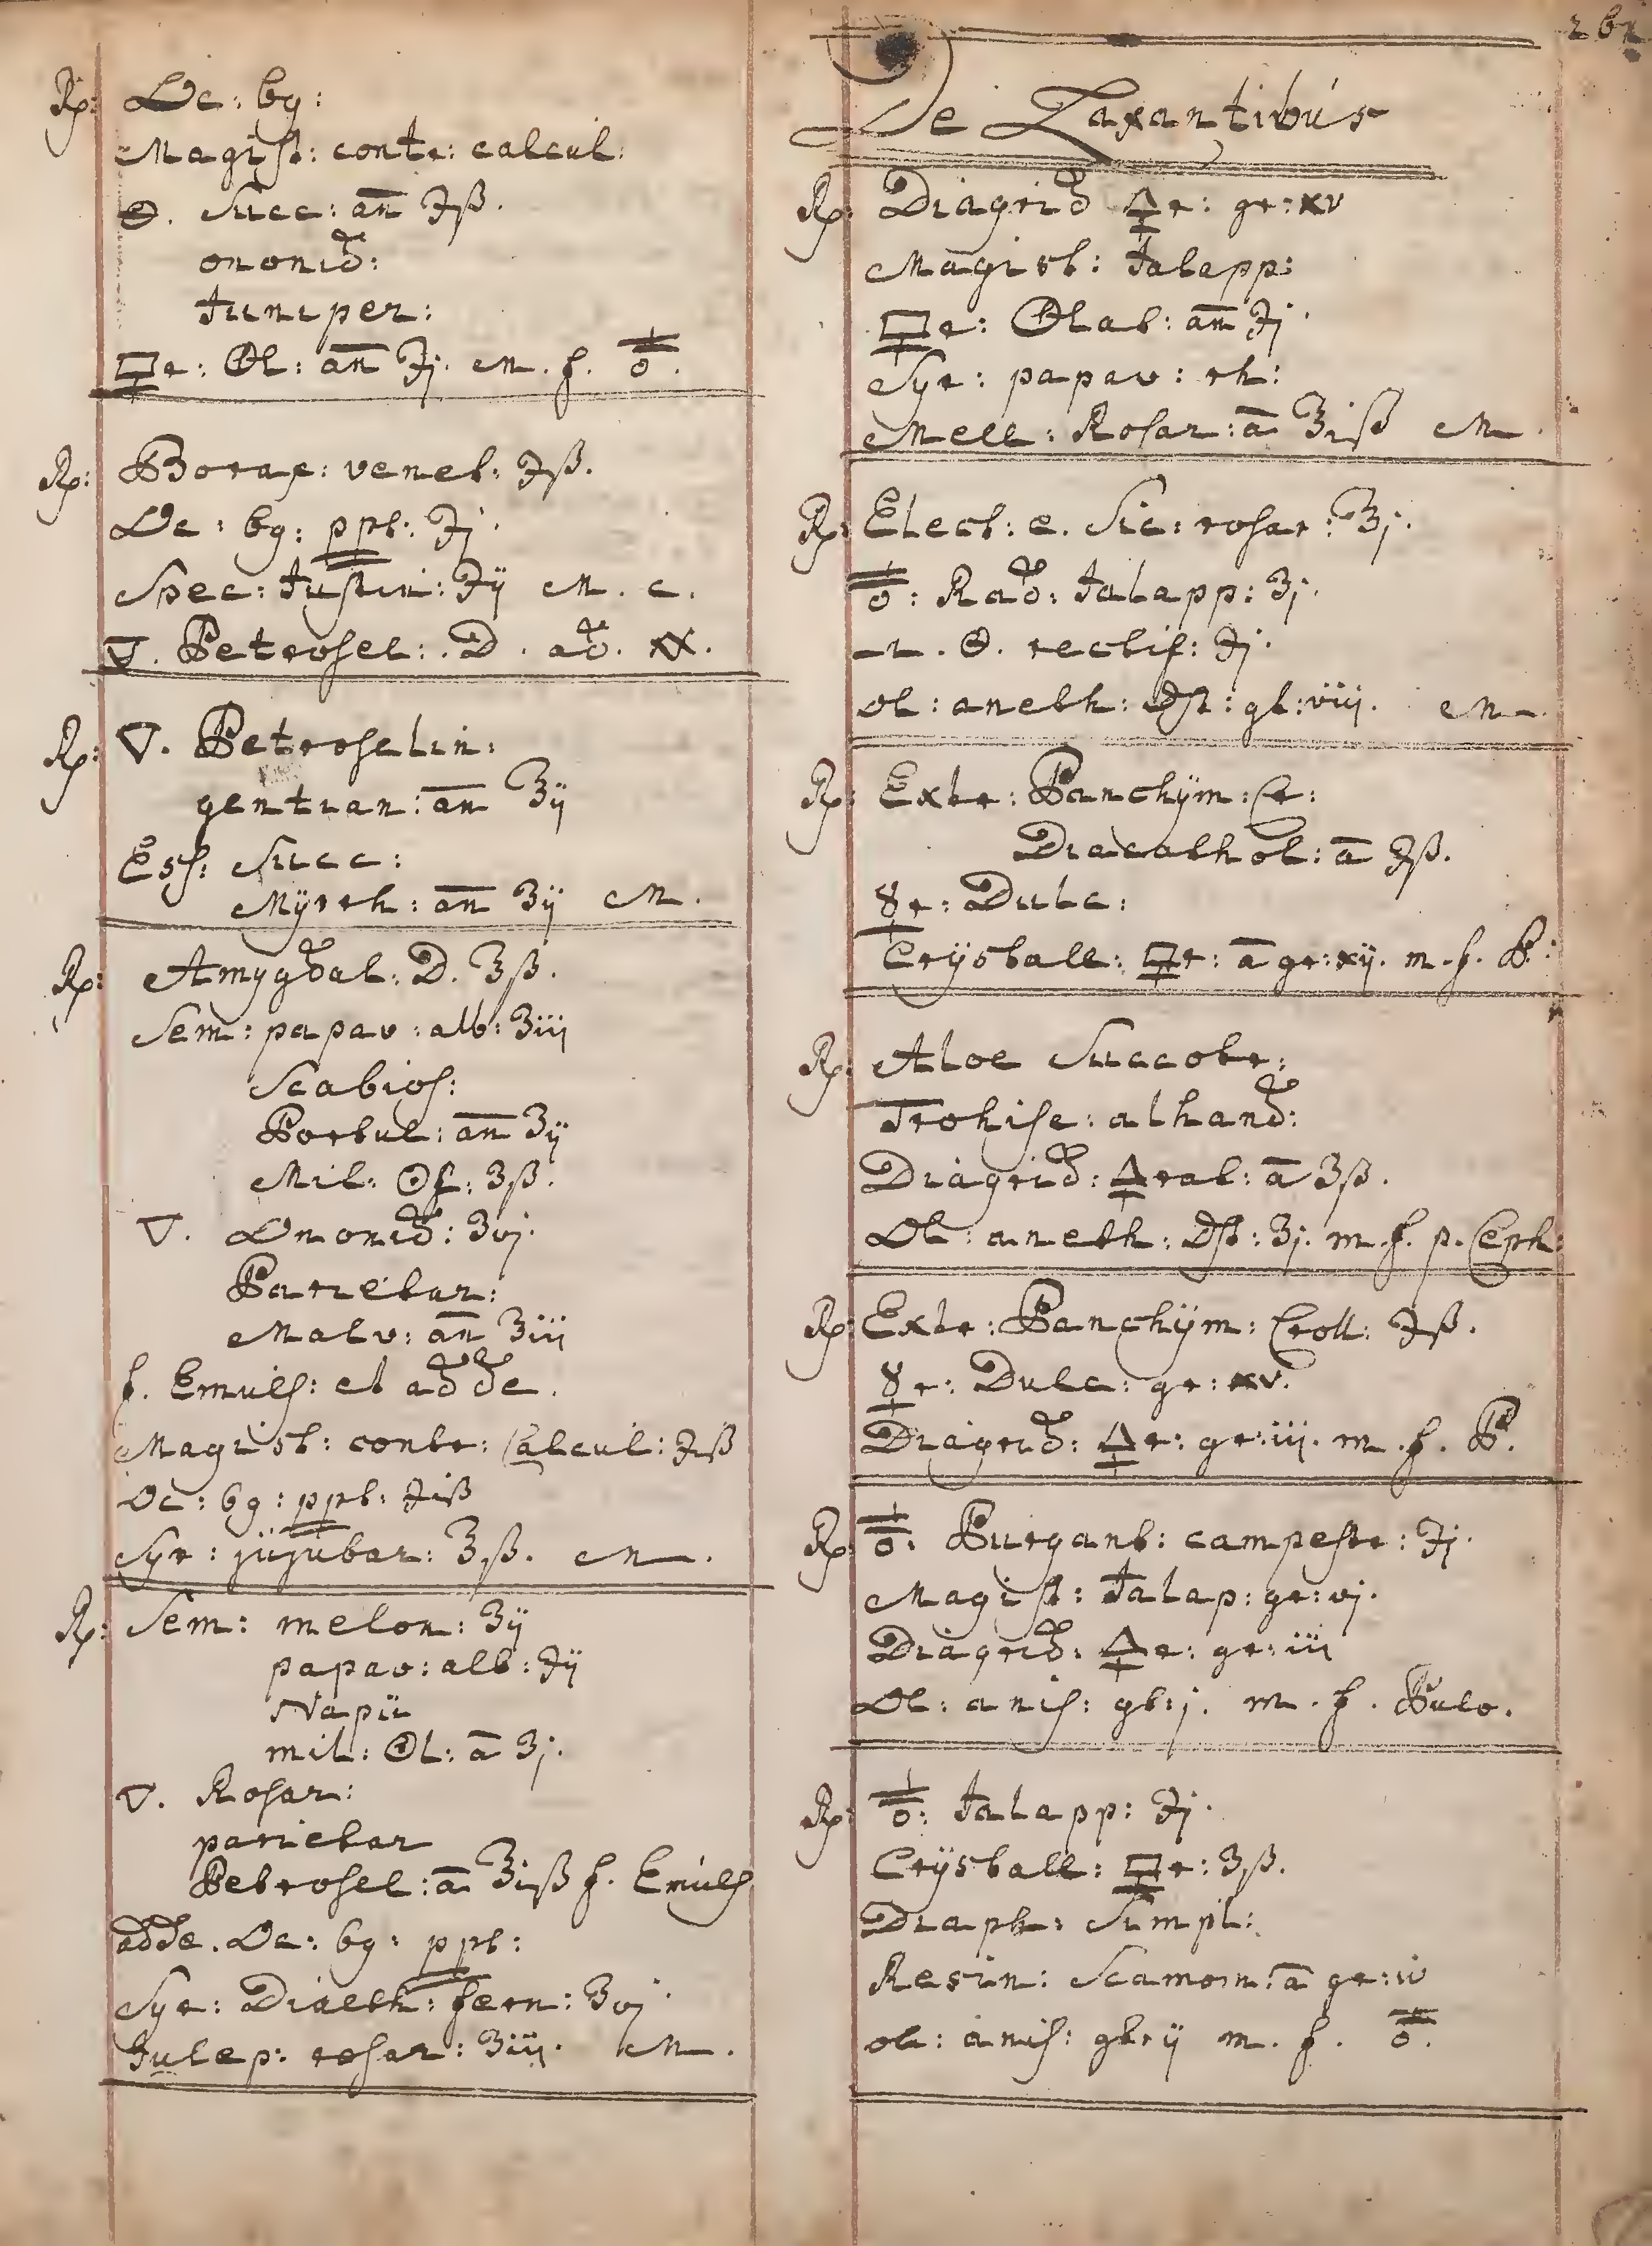 Rp: Oc: bg:
Magist: contr: calcul:
🜔. Succ: an̄ ℈ß.
ononid:
Juniper:
🜿r: 🜕l: an̄ ℈j. M. f. 🜛.
Rp: Borax: venet: ℈ß.
Oc: bg: ppt: ℈j.
Spec: Justin: ℈ij M. c.
🜄. Petrosel: D. ad. X.
Rp: 🜄. Petroselin:
gentian: an̄ ℥ij
Ess: Succ:
Myrrh: an̄ ʒij M.
Rp: Amygdal: D. ℥ß.
Sem: papav: alb: ʒiij
Scabios:
Portul: an̄ ʒij
Mil: ☉l: ʒß.
🜄. Ononid: ℥vj.
Parietar:
Malv: an̄ ℥iij
f. Emuls: et adde.
Magist: contr: Calcul: ℈ß
Oc: bg: ppt: ℈iß
Syr: jujubar: ℥ß. M.
Rp: Sem: melon: ʒij
papav: alb: ℈ij
Napii
mil: ☉l: ā ʒj.
🜄. Rosar:
parietar
Petrosel: ā ℥iß f. Emuls
adde. Oc: bg: ppt:
Syr: Diacth: fern: ʒvj
Julep: rosar: ʒiij. M.
261
De Laxantibus
Rp: Diagrid 🜍r: gr: xv
Magist: Jalapp:
🜿r: 🜕lat: an̄ ℈j
Syr: papav: rh:
Mell: Rosar: ā ℥iß M.
Rp: Elect: e. Suc: rosar: ʒj.
🜛: Rad: Jalapp: ʒj.
🜔. rectif: ℈j.
Ol: aneth: dst: gt: viij. M.
Rp: Extr: Panchym: Cr:
Diacathol: ā ℈ß.
☿r: Dulc:
Crystall: 🜿r: ā gr: xij. m. f. P:
Rp: Aloe Succotr:
Trohisc: alhand:
Diagrid: 🜍rat: ā ʒß.
Ol: aneth: Dst: ʒj. m. f. p. Ceph:
Rp: Extr: Panchym: Croll: ℈ß.
☿r: Dulc: gr: xv.
Diagrid: 🜍r: gr: iij. m. f. P.
Rp: 🜛. Purgant: campestr: ℈j.
Magist: Jalap: gr: vj.
Diagrid: 🜍r: gr: iij
Ol: anis: gt: j. m. f. Pulv.
Rp: 🜛: Jalapp: ℈j.
Crystall: 🜿r: ʒß.
Diaph: Simpl:
Resin: Scamon: ā gr: iv
ol: anis: gtt ij m. f. 🜛.